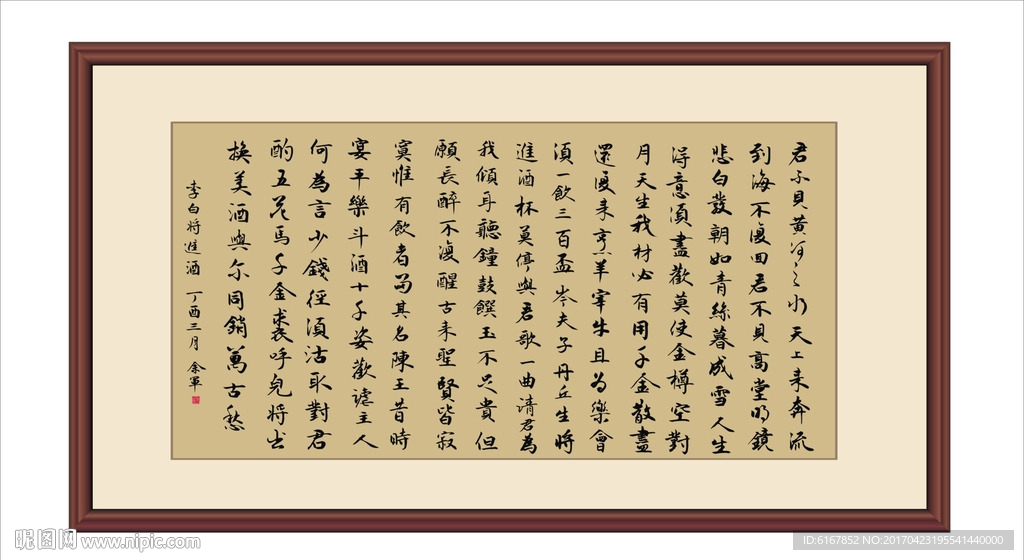 君不見黃河之水天上来奔流
到海不復回君不見高堂明鏡
悲白發朝如青絲暮成雪人生
得意須盡歡莫使金樽空對
月天生我材必有用千金散盡
還復来烹羊宰牛且為樂會
須一飲三百盃岑夫子丹丘生將
進酒杯莫停與君歌一曲請君為
我傾耳聽鐘鼓饌玉不足貴但
願長醉不復醒古来聖賢皆寂
寞惟有飲者留其名陳王昔時
宴平樂斗酒十千姿歡謔主人
何為言少錢徑須沽取對君
酌五花馬千金裘呼兒將出
換美酒與尔同銷萬古愁
李白將進酒 丁酉三月 余軍
昵图网 www.nipic.com
ID:6167852 NO:20170423195541440000